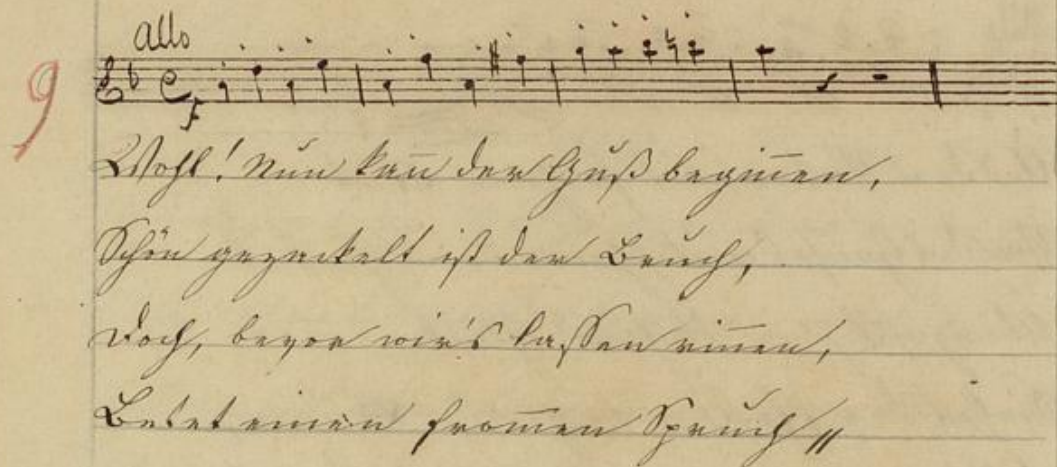 allo
9
f
Wohl! Nun kan̄ der Guß begin̄en,
Schön gezackelt ist der Bruch,
Doch, bevor wir's lassen rin̄en,
Betet einen from̄en Spruch〃